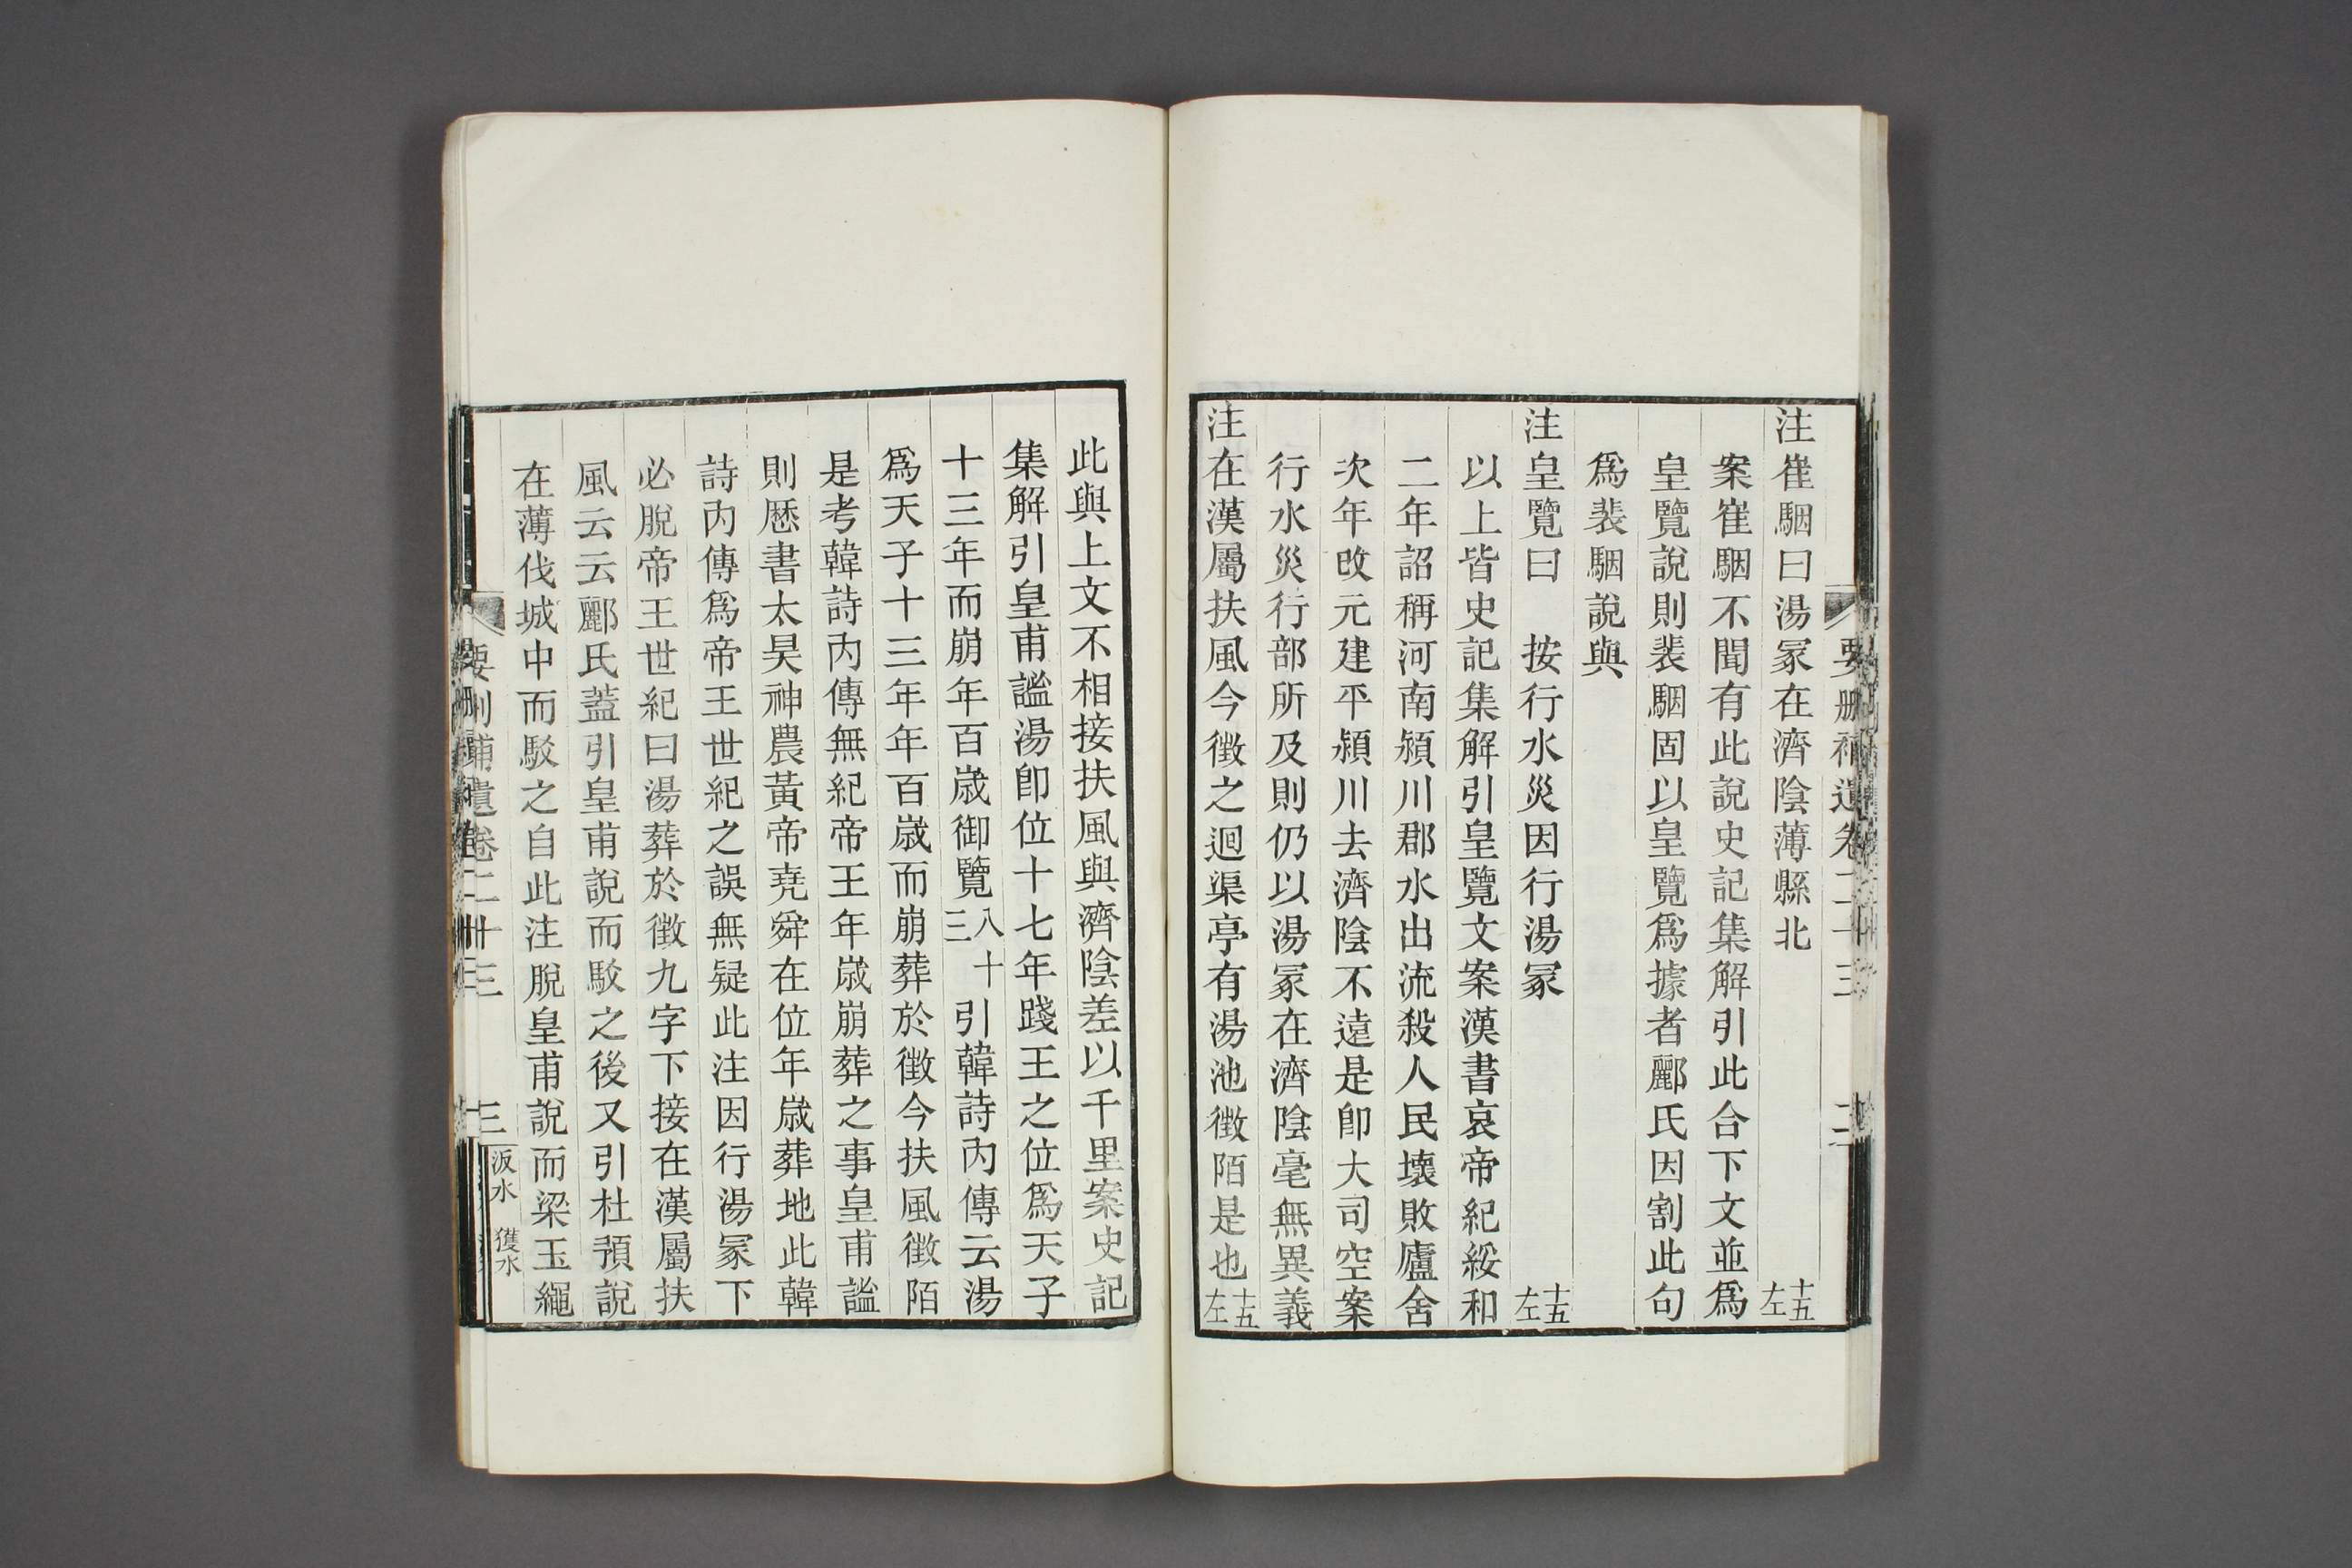 注崔駰曰湯冢在濟陰薄縣北十五左
案崔駰不聞有此說史記集解引此合下文並爲
皇覽說則裴駰固以皇覽爲據者酈氏因割此句
爲裴駰說與
注皇覽曰　按行水災因行湯冢十五左
以上皆史記集解引皇覽文案漢書哀帝紀綏和
二年詔稱河南潁川郡水出流殺人民壞敗廬舍
次年改元建平潁川去濟陰不遠是卽大司空案
行水災行部所及則仍以湯冢在濟陰毫無異義
注在漢屬扶風今徵之迴渠亭有湯池徵陌是也十五左
此與上文不相接扶風與濟陰差以千里案史記
集解引皇甫謐湯卽位十七年踐王之位爲天子
十三年而崩年百歲御覽八十三引韓詩內傳云湯
爲天子十三年年百歲而崩葬於徵今扶風徵陌
是考韓詩內傳無紀帝王年歲崩葬之事皇甫謐
則歷書太昊神農黃帝堯舜在位年歲葬地此韓
詩內傳爲帝王世紀之誤無疑此注因行湯冢下
必脫帝王世紀曰湯葬於徵九字下接在漢屬扶
風云云酈氏蓋引皇甫說而駁之後又引杜預說
在薄伐城中而駁之自此注脫皇甫說而梁玉繩
要刪補遺卷二十三
三
汳水　獲水